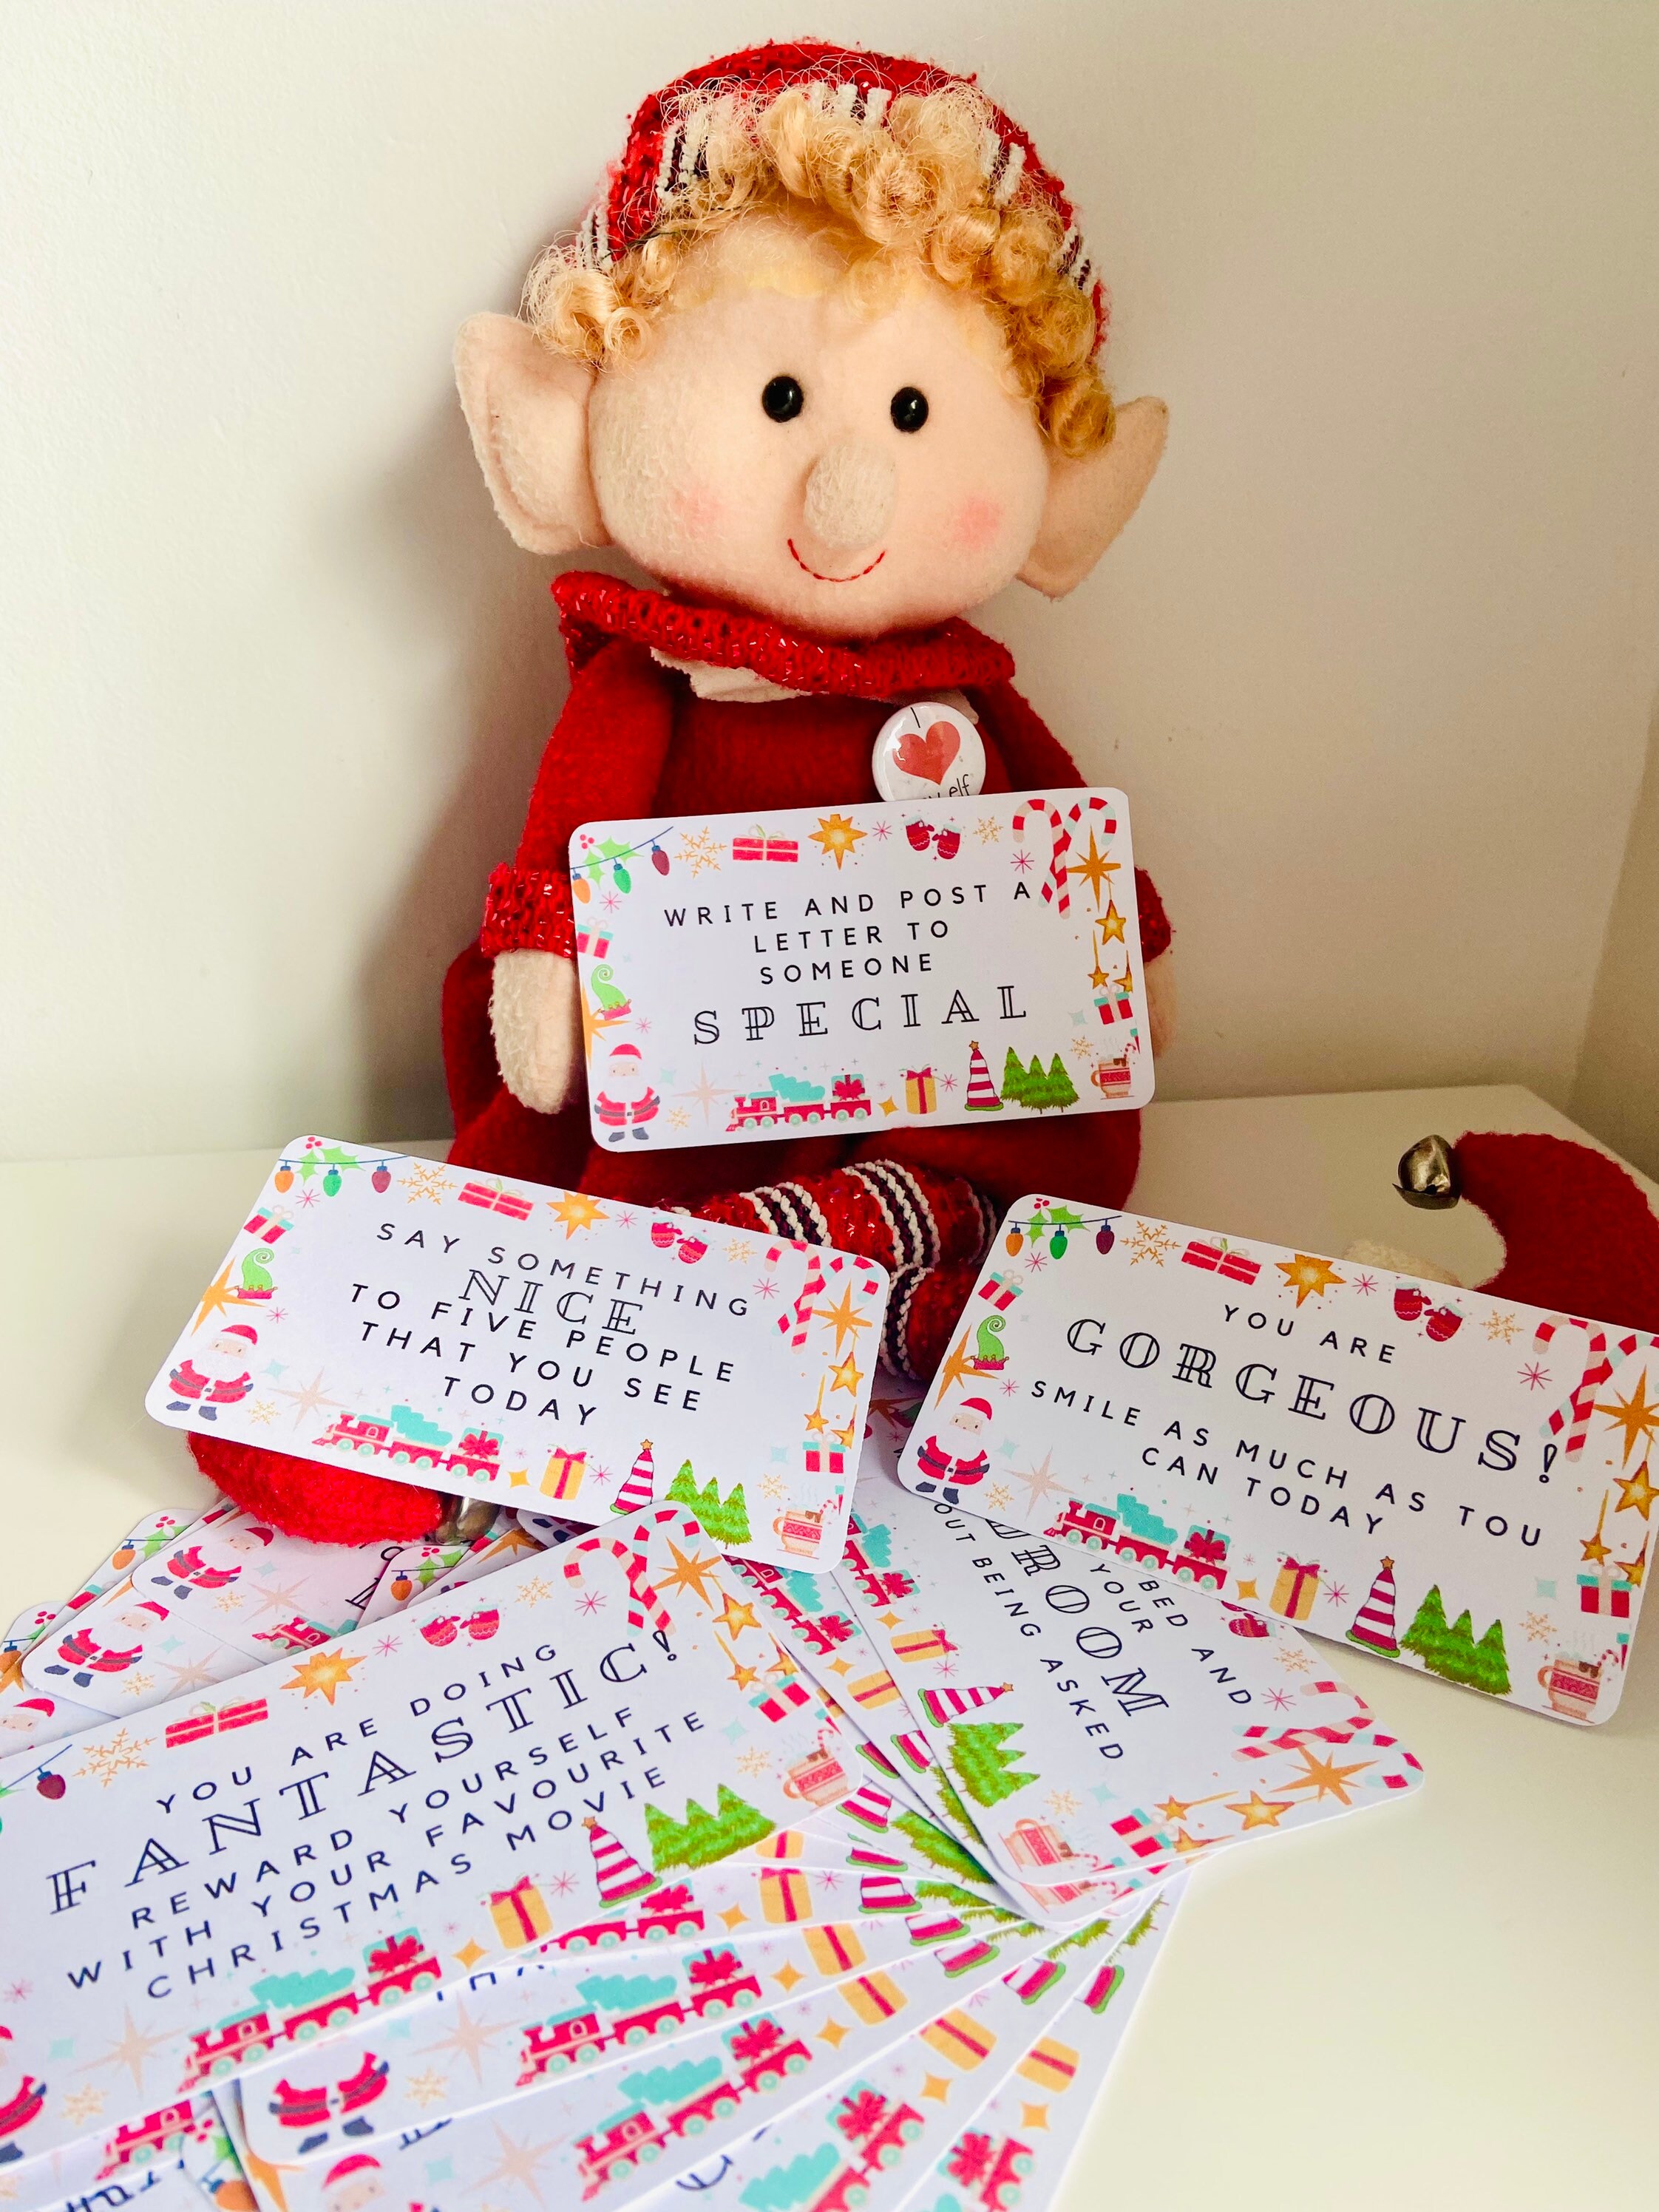 I
elf
WRITE AND POST A
LETTER TO
SOMEONE
SPECIAL
SAY SOMETHING
NICE
TO FIVE PEOPLE
THAT YOU SEE
TODAY
YOU ARE
GORGEOUS!
SMILE AS MUCH AS YOU
CAN TODAY
BED AND
YOUR
ROOM
OUT BEING ASKED
YOU ARE DOING
FANTASTIC!
REWARD YOURSELF
WITH YOUR FAVOURITE
CHRISTMAS MOVIE